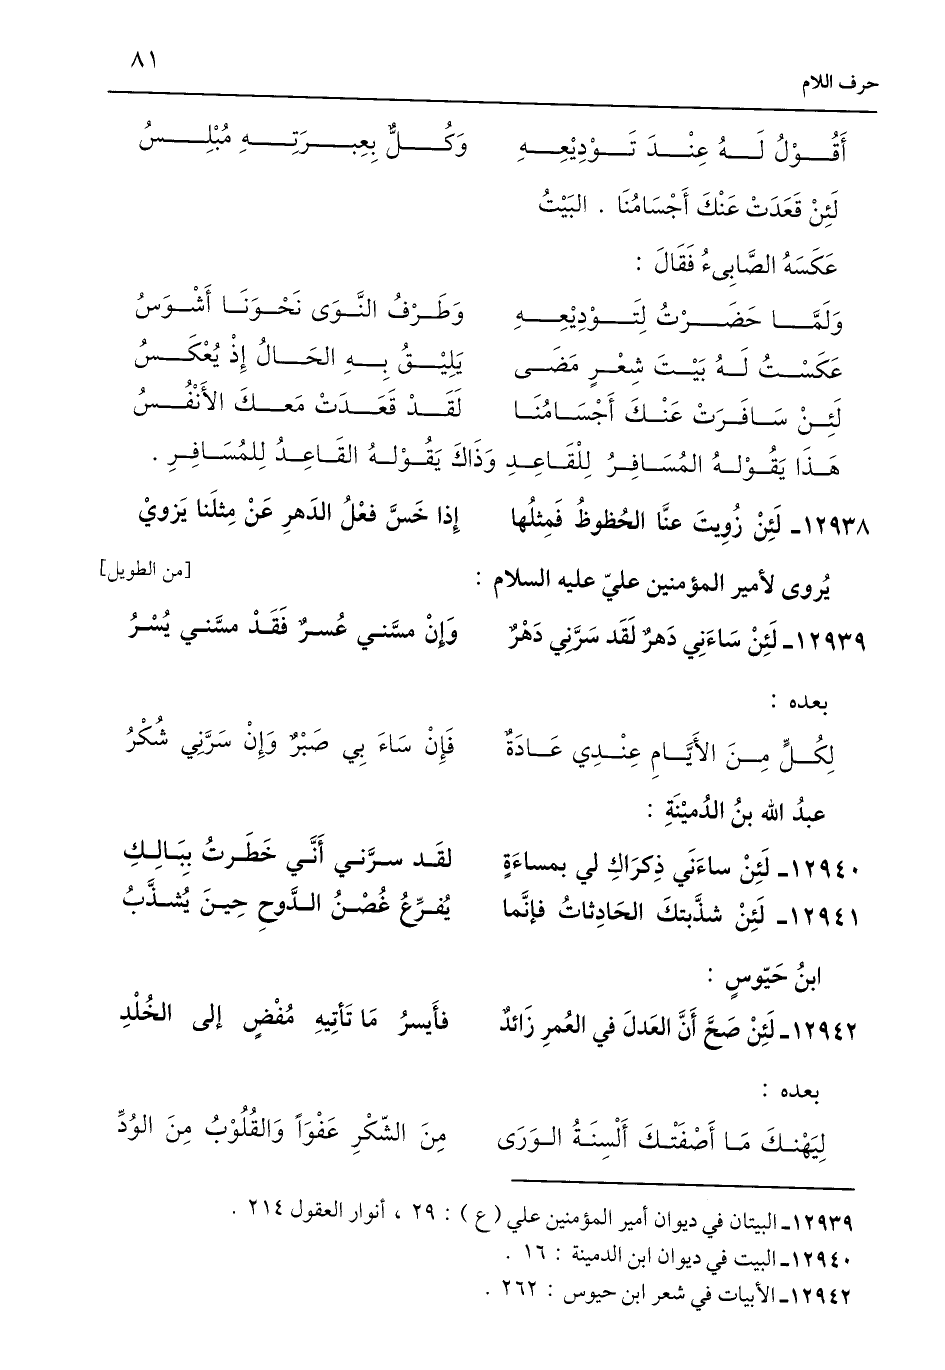 ٨١
حرف اللام
أَقُــوْلُ لَــهُ عِنْــدَ تَــوْدِيْعِــهِ وَكُــلٌّ بِعِبــرَتِــهِ مُبْلِــسُ
لَئِنْ قَعَدَتْ عَنْكَ أَجْسَامُنَا . البَيْتُ
عَكَسَهُ الصَّابِىءُ فَقَالَ :
وَلَمَّــا حَضَــرْتُ لِتَــوْدِيْعِــهِ وَطَــرْفُ النَّوَى نَحْوَنَــا أَشْــوَسُ
عَكَسْــتُ لَــهُ بَيْــتَ شِعْــرٍ مَضَــى يَلِيْــقُ بِــهِ الحَــالُ إِذْ يُعْكَــسُ
لَئِــنْ سَــافَــرَتْ عَنْــكَ أَجْسَــامُنَــا لَقَــدْ قَعَــدَتْ مَعَــكَ الأَنْفُــسُ
هَــذَا يَقُــوْلــهُ المُسَــافِــرُ لِلْقَاعِــدِ وَذَاكَ يَقُــوْلــهُ القَاعِــدُ لِلمُسَــافِــرِ .
١٢٩٣٨ـ لَئِنْ زُوِيتَ عنَّا الحُظوظُ فَمِثلُها إذا خَسَّ فعْلُ الدَهرِ عَنْ مِثلَنا يَزوِيْ
يُروى لأمير المؤمنين عليّ عليه السلام : [من الطويل]
١٢٩٣٩ـ لَئِنْ سَاءَنِي دَهرٌ لَقَد سَرَّنِي دَهْرٌ وَإِنْ مسَّنـي عُسـرٌ فَقَـدْ مسَّنـي يُسْـرُ
بعده :
لِكُــلٍّ مِــنَ الأَيَّــامِ عِنْــدِي عَــادَةٌ فَإِنْ سَاءَ بِي صَبْرٌ وَإِنْ سَرَّنِي شُكْرُ
عبدُ الله بنُ الدُميْنَةِ :
١٢٩٤٠ـ لَئِنْ ساءَنَي ذِكرَاكِ لي بمساءَةٍ لقَـد سـرَّنـي أَنَّـي خَطَـرتُ بِبَـالِـكِ
١٢٩٤١ـ لَئِنْ شذَّبتكَ الحَادِثاتُ فإنَّما يُفـرِّعُ غُصْـنُ الـدَّوحِ حِيـنَ يُشْـذَّبُ
ابنُ حَيّوسٍ :
١٢٩٤٢ـ لَئِنْ صَحَّ أَنَّ العَدلَ في العُمرِ زَائدٌ فأَيسرُ مَا تَأتِيهِ مُفْضٍ إلى الخُلْدِ
بعده :
لِيَهْنِـكَ مَـا أَصْفَتْـكَ أَلْسِنَـةُ الـوَرَى مِنَ الشّكْرِ عَفْوَاً وَالقُلُوْبُ مِنَ الوُدِّ
١٢٩٣٩ـ البيتان في ديوان أمير المؤمنين علي (ع) : ٢٩ ، أنوار العقول ٢١٤ .
١٢٩٤٠ـ البيت في ديوان ابن الدمينة : ١٦ .
١٢٩٤٢ـ الأبيات في شعر ابن حيوس : ٢٦٢ .